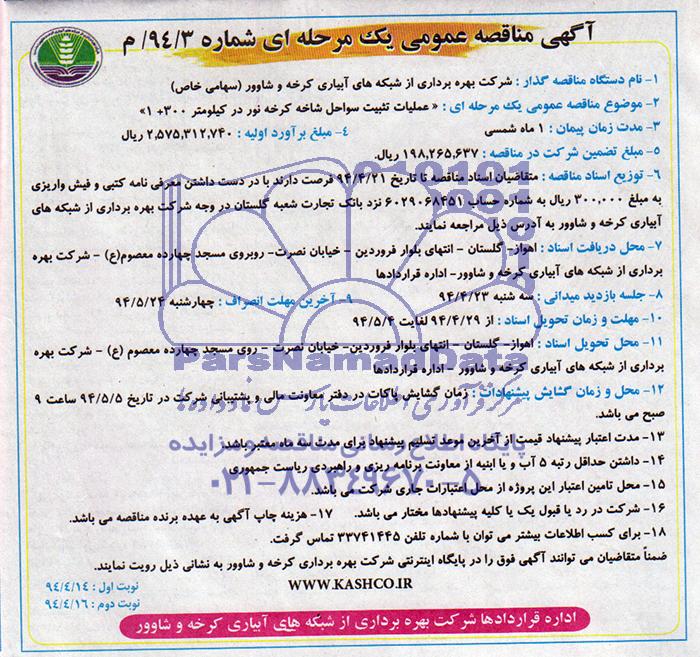 آگهی مناقصه عمومی یک مرحله ای شماره ۹۴/۳/ م
۱- نام دستگاه مناقصه گذار : شرکت بهره برداری از شبکه های آبیاری کرخه و شاوور (سهامی خاص)
۲- موضوع مناقصه عمومی یک مرحله ای : « عملیات تثبیت سواحل شاخه کرخه نور در کیلومتر ۳۰۰+ ۱»
۳- مدت زمان پیمان : ۱ ماه شمسی ۴- مبلغ برآورد اولیه : ۲,۵۷۵,۳۱۲,۷۴۰ ریال
۵- مبلغ تضمین شرکت در مناقصه : ۱۹۸,۲۶۵,۶۳۷ ریال.
۶- توزیع اسناد مناقصه : متقاضیان اسناد مناقصه تا تاریخ ۹۴/۴/۲۱ فرصت دارند با در دست داشتن معرفی نامه کتبی و فیش واریزی
به مبلغ ۳۰۰,۰۰۰ ریال به شماره حساب ۶۰۲۹۰۶۸۴۵۱ نزد بانک تجارت شعبه گلستان در وجه شرکت بهره برداری از شبکه های
آبیاری کرخه و شاوور به آدرس ذیل مراجعه نمایند.
۷- محل دریافت اسناد : اهواز- گلستان - انتهای بلوار فروردین - خیابان نصرت- روبروی مسجد چهارده معصوم(ع) - شرکت بهره
برداری از شبکه های آبیاری کرخه و شاوور- اداره قراردادها
۸- جلسه بازدید میدانی : سه شنبه ۹۴/۴/۲۳ ۹- آخرین مهلت انصراف : چهارشنبه ۹۴/۵/۲۴
۱۰- مهلت و زمان تحویل اسناد : از ۹۴/۴/۲۹ لغایت ۹۴/۵/۴
۱۱- محل تحویل اسناد : اهواز- گلستان - انتهای بلوار فروردین- خیابان نصرت - روی مسجد چهارده معصوم (ع) - شرکت بهره
برداری از شبکه های آبیاری کرخه و شاوور - اداره قراردادها
۱۲- محل و زمان گشایش پیشنهادات : زمان گشایش پاکات در دفتر معاونت مالی و پشتیبانی شرکت در تاریخ ۹۴/۵/۵ ساعت ۹
صبح می باشد.
۱۳- مدت اعتبار پیشنهاد قیمت از آخرین موعد تسلیم پیشنهاد برای مدت سه ماه معتبر باشد.
۱۴- داشتن حداقل رتبه ۵ آب و یا ابنیه از معاونت برنامه ریزی و راهبردی ریاست جمهوری
۱۵- محل تامین اعتبار این پروژه از محل اعتبارات جاری شرکت می باشد.
۱۶- شرکت در رد یا قبول یک یا کلیه پیشنهادها مختار می باشد. ۱۷- هزینه چاپ آگهی به عهده برنده مناقصه می باشد.
۱۸- برای کسب اطلاعات بیشتر می توان با شماره تلفن ۳۳۷۴۱۴۴۵ تماس گرفت.
ضمناً متقاضیان می توانند آگهی فوق را در پایگاه اینترنتی شرکت بهره برداری کرخه و شاوور به نشانی ذیل رویت نمایند.
WWW.KASHCO.IR
نوبت اول : ۹۴/۴/۱۴
نوبت دوم : ۹۴/۴/۱۶
اداره قراردادها شرکت بهره برداری از شبکه های آبیاری کرخه و شاوور
ParsNamadData
پایگاه اطلاع رسانی مناقصه و مزایده
۰۲۱-۸۸۳۴۹۶۷۰-۵